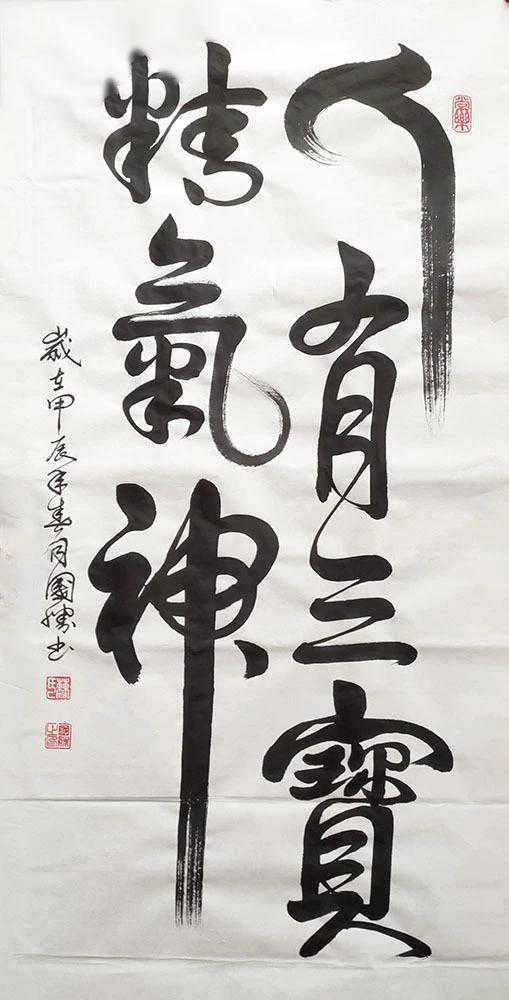 人有三寶
精氣神
歲在甲辰年春月國勝書